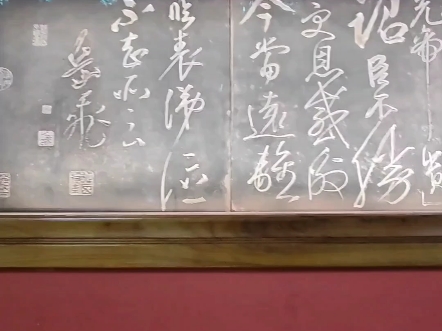 先帝
詔臣不勝
受恩感激
今當遠離
臨表涕泣
不知所云
岳飛